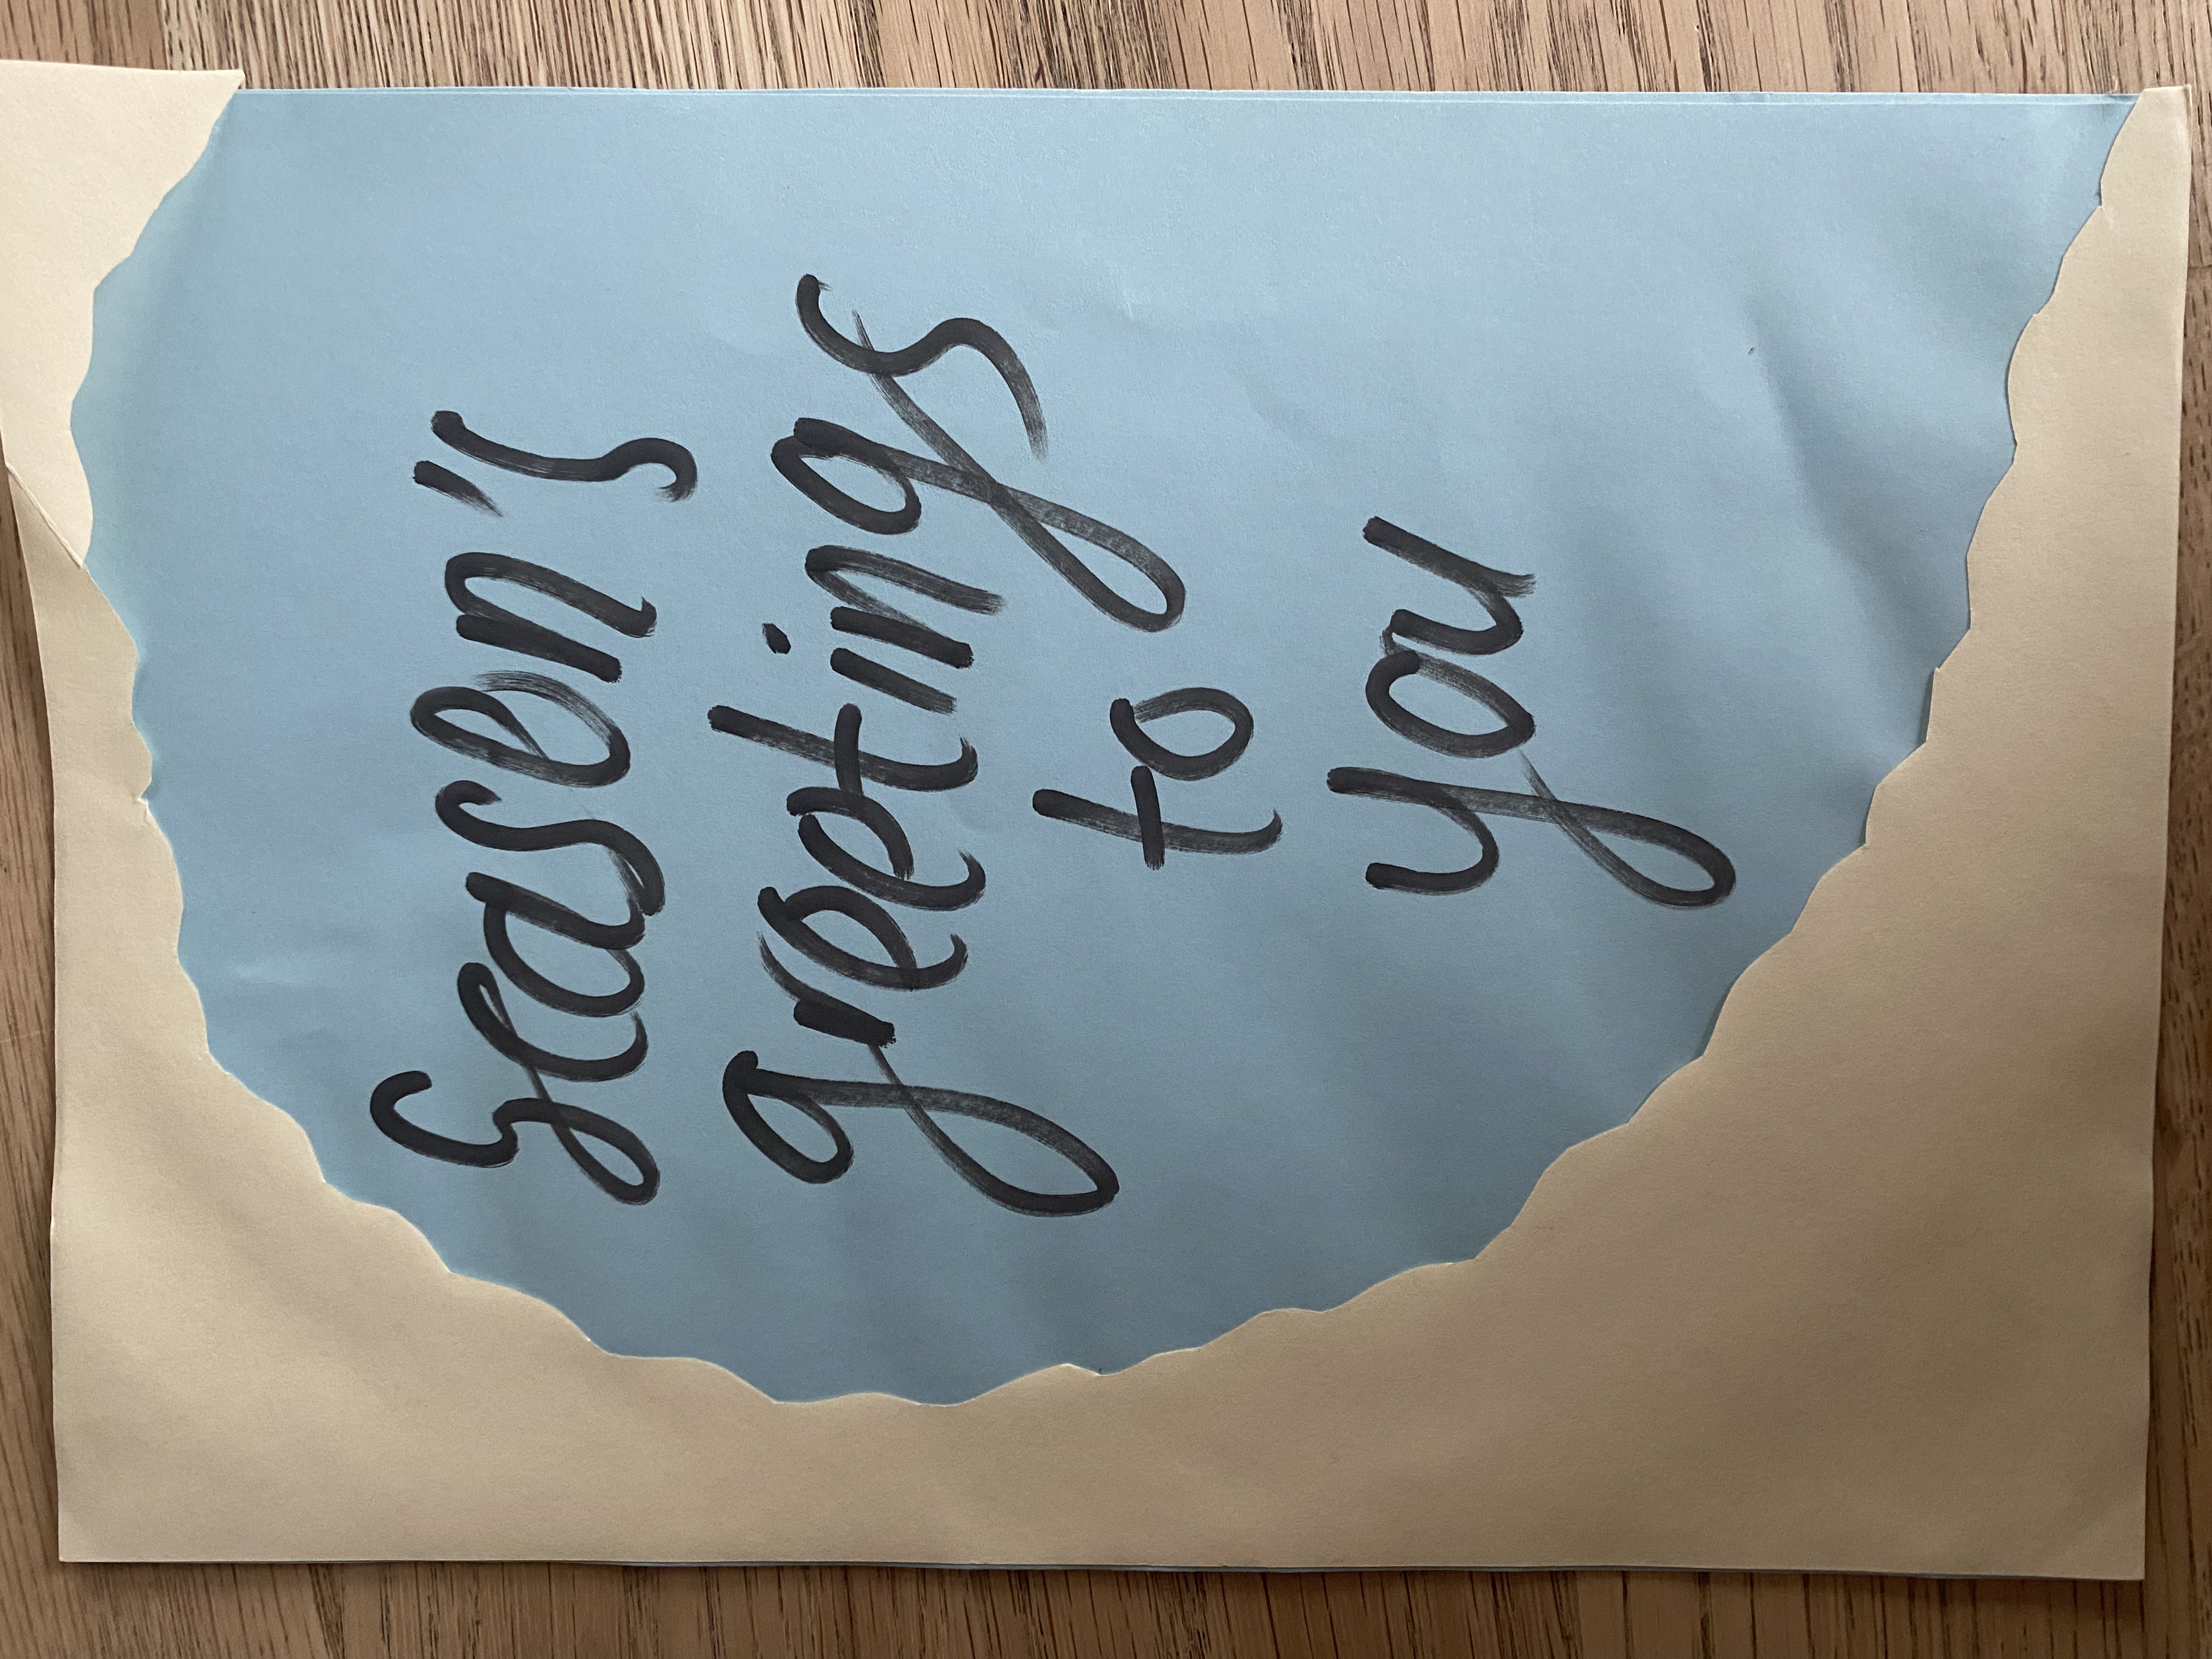 Season's
greetings
to
you